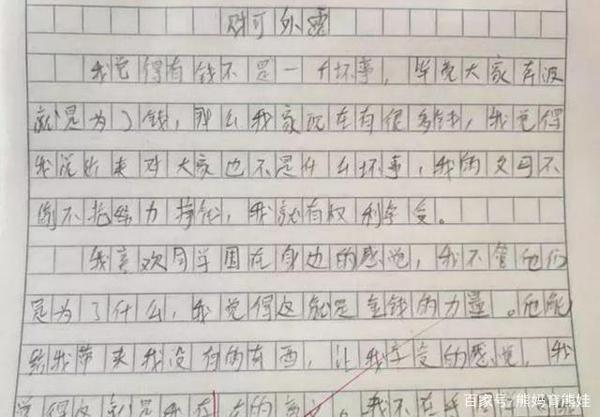 财可外露
我觉得有钱不是一个坏事，毕竟大家奔波
就是为了钱，那么我家现在有很多钱，我觉得
我说出来对大家也不是什么坏事，我的父母不
偷不抢努力挣钱，我就有权利享受。
我喜欢同学围在身边的感觉，我不管他们
是为了什么，我觉得这就是金钱的力量。他能
给我带来我没有的东西，让我享受的感觉，我
觉得这就是我存在的意义。我不在乎
百家号/熊妈育熊娃